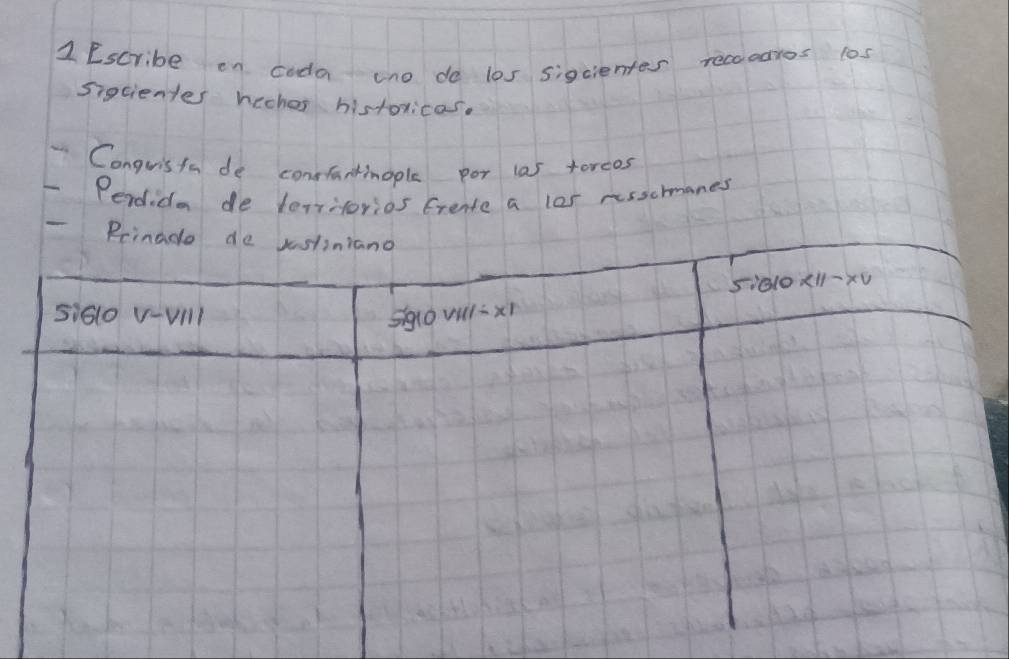 1 Escribe en cada uno de los sigcientes reccadros los
sigcientes hechos historicas.
- Conquista de constantinopla por las torcos
- Perdida de territorios frente a las musschmanes
- Reinado de justiniano
SiGlO V-VIII
Siglo VIII-XI
SiGlO XII-XV